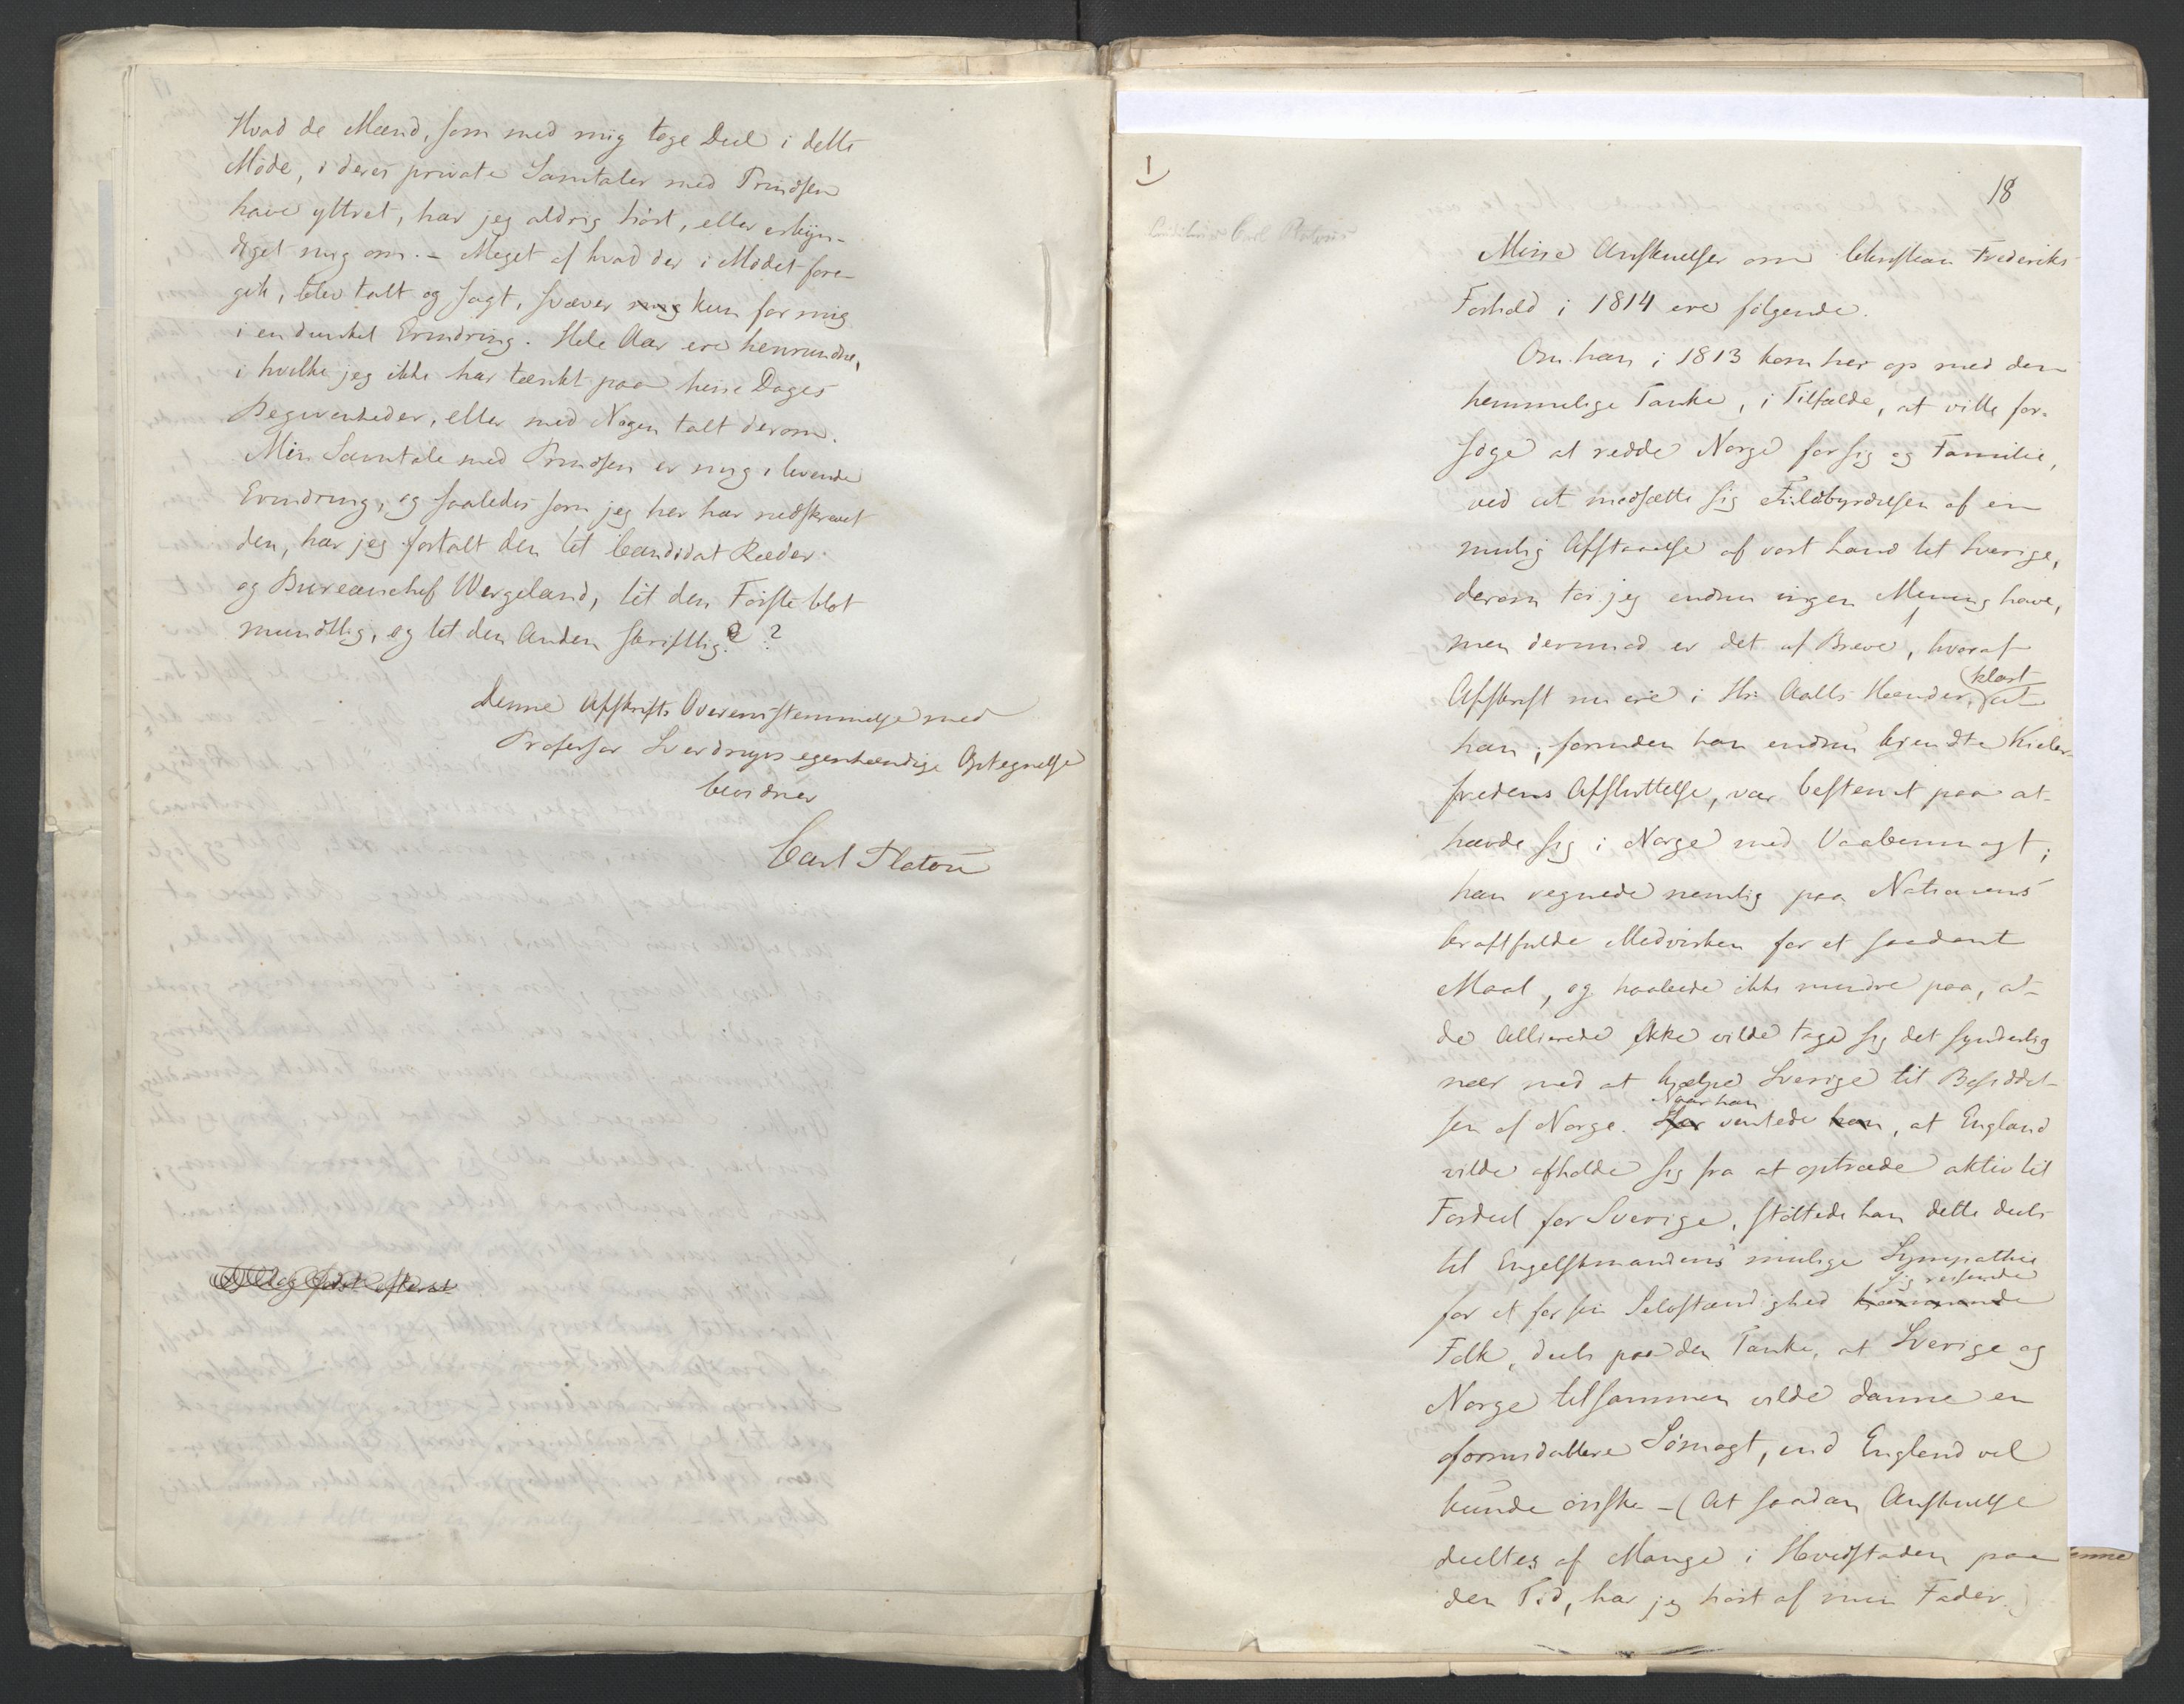 Hvad de Mænd, som med mig toge Deel i dette
Møde, i deres private Samtaler med Prindsen
have yttret, har jeg aldrig hørt, eller erkyn-
diget mig om. – Meget af hvad der i Mødet fore-
gik, blev talt og sagt, svæver mig kun for mig
i en dunkel Erindring. Hele Aar ere henrundne,
i hvilke jeg ikke har tænkt paa hine Dages
Begivenheder, eller med Nogen talt derom.
Min Samtale med Prindsen er mig i levende
Erindring, og saaledes som jeg her har nedskrevet
den, har jeg fortalt den til Candidat Ræder
og Bureauchef Wergeland, til den Første blot
mundtlig, og til den Anden skriftlig. ?
Denne Afskrifts Overensstemmelse med
Professor Sverdrups egenhændige Optegnelse
bevidner
Carl Platou
1
18
Carl Platous
Mine Anskuelser om Christian Frederiks
Forhold i 1814 ere følgende.
Om han i 1813 kom her op med den
hemmelige Tanke, i Tilfælde, at ville for-
søge at redde Norge for sig og Familie,
ved at modsætte sig Fuldbyrdelsen af en
mulig Afstaaelse af vort Land til Sverige,
derom tør jeg endnu ingen Mening have,
men derimod er det af Breve, hvoraf
Afskrift nu ere i Hr. Aalls Hænder, klart at
han, forinden han endnu kjendte Kieler-
fredens Afsluttelse, var bestemt paa at
hævde sig i Norge med Vaabenmagt;
han regnede nemlig paa Nationens
kraftfulde Medvirken for et saadant
Maal, og haabede ikke mindre paa, at
de Allierede ikke vilde tage sig det synderlig
nær med at hjælpe Sverige til Besiddel-
sen af Norge. Naar han ventede han, at England
vilde afholde sig fra at optræde aktiv til
Fordeel for Sverige, støttede han dette deels
til Engelskmandens mulige Sympathie
for et for sin Selvstændighed sig reisende
Folk, deels paa den Tanke, at Sverige og
Norge tilsammen vilde danne en
formidablere Sömagt, end England vel
kunde ønske – (At saadan Anskuelse
deeltes af Mange i Hovedstaden paa
den Tid, har jeg hørt af min Fader.)